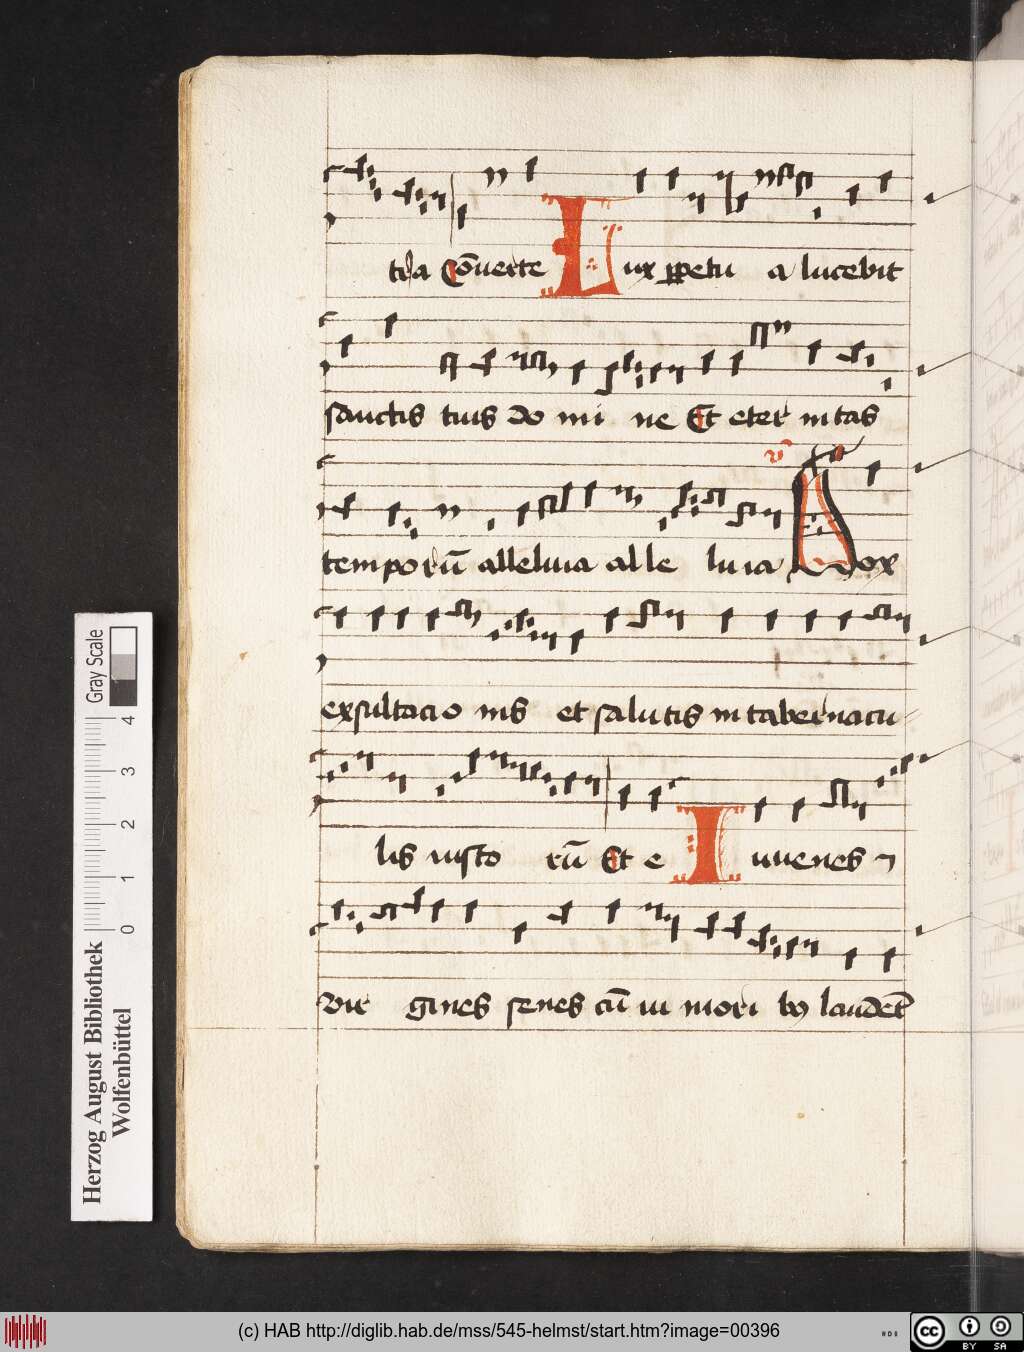 tr̄a Cōuerte Lux ꝑpetu a lucebit
sanctis tuis do mi ne Et eter nitas
ꝟ
temporū alleluia al le lu ia Vox
exsultacio nis et salutis in tabernacu
lis iusto rū Et e Iuuenes ⁊
vir gines senes cū iu niori bꝫ
Herzog August Bibliothek
Wolfenbüttel
Gray Scale
0 1 2 3 4
(c) HAB http://diglib.hab.de/mss/545-helmst/start.htm?image=00396
cc BY SA